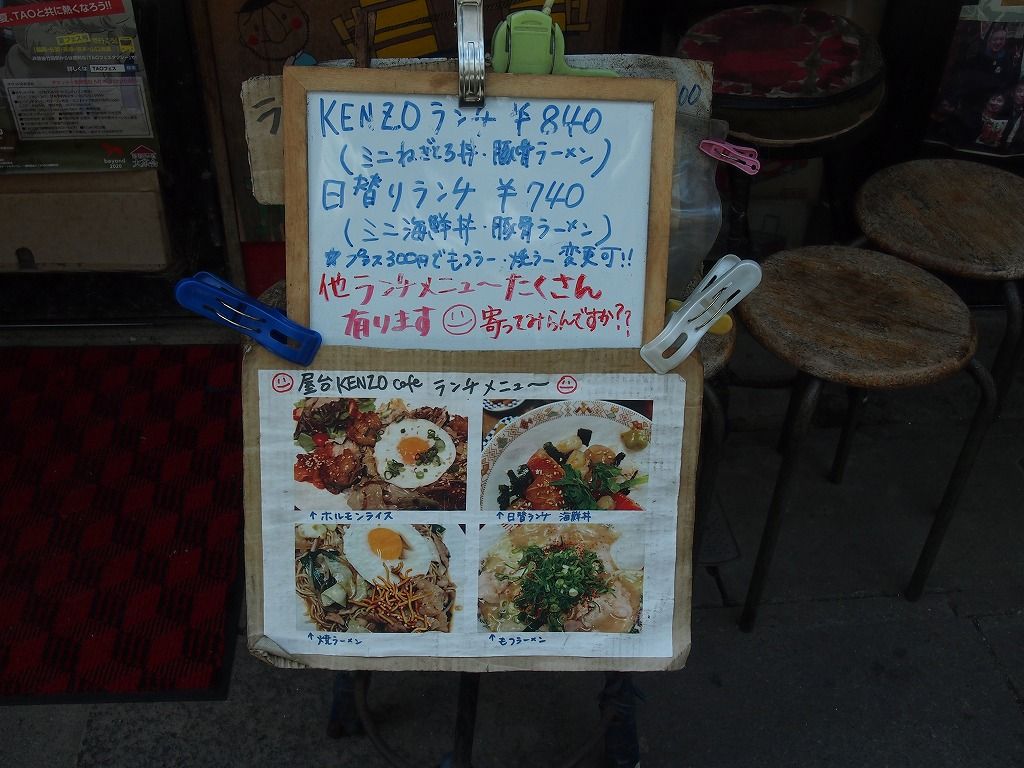 夏、TAOと共に熱くなろう!!
詳しくは TAOフェス
beyond 2020
ラ
00
KENZOランチ ¥840
(ミニねぎとろ丼・豚骨ラーメン)
日替りランチ ¥740
(ミニ海鮮丼・豚骨ラーメン)
☆プラス300円でもつラー・焼ラー変更可!!
他ランチメニュ〜たくさん
有ります 寄ってみらんですか??
屋台KENZO cafe ランチメニュ〜
↑ホルモンライス
↑日替ランチ 海鮮丼
↑焼ラーメン
↑もつラーメン